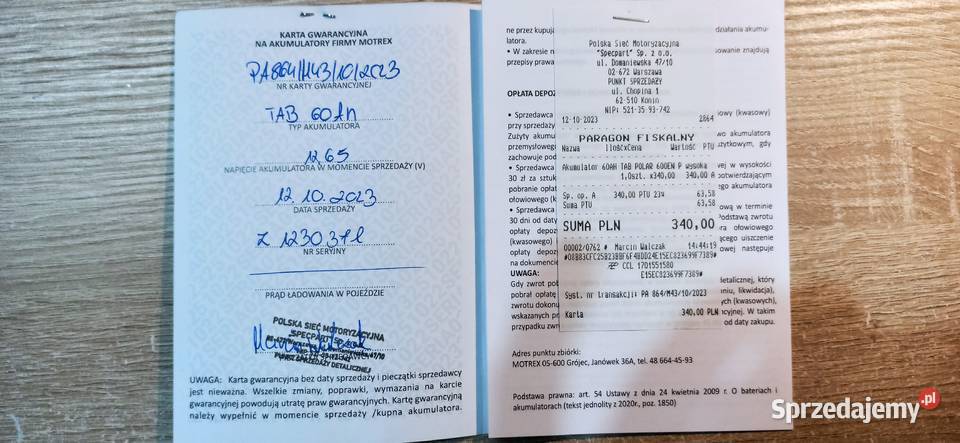 KARTA GWARANCYJNA
NA AKUMULATORY FIRMY MOTREX
PA864/M43/10/2023
NR KARTY GWARANCYJNEJ
TAB 60Ah
TYP AKUMULATORA
12,65
NAPIĘCIE AKUMULATORA W MOMENCIE SPRZEDAŻY (V)
12.10.2023
DATA SPRZEDAŻY
NR SERYJNY
PRĄD ŁADOWANIA W POJEŹDZIE
POLSKA SIEĆ MOTORYZACYJNA
PUNKT SPRZEDAŻY DETALICZNEJ
UWAGA: Karta gwarancyjna bez daty sprzedaży i pieczątki sprzedawcy
jest nieważna. Wszelkie zmiany, poprawki, wymazania na karcie
gwarancyjnej powodują utratę praw gwarancyjnych. Kartę gwarancyjną
należy wypełnić w momencie sprzedaży /kupna akumulatora.
ne przez kupują działania akumu-
latora.
• W zakresie n owanie znajdują
przepisy prawa
OPŁATA DEPOZ
• Sprzedawca owy (kwasowy)
przy sprzedaży
Zużyty akumu wo akumulatora
przemysłowego użytkowym, gdy
zachowuje pod
• Sprzedawca ej w wysokości
30 zł za sztuk otwierdzającym
pobranie opłat ego akumulatora
ołowiowego (k
• Sprzedawca ową w terminie
30 dni od daty odstawą zwrotu
opłaty depoz ra ołowiowego
(kwasowego) ącego uiszczenie
opłaty depoz owej następuje
na dokumencie
UWAGA:
Gdy zwrot pob etalicznej, który
pobrał opłatę niu, likwidacja),
zwrotu dokonu ych (kwasowych),
wskazanych pr cyjnej. W takim
przypadku zwro od daty zakupu.
Polska Sieć Motoryzacyjna
"Specpart" Sp. z o.o.
ul. Domaniewska 47/10
02-672 Warszawa
PUNKT SPRZEDAŻY
ul. Chopina 1
62-510 Konin
NIP: 521-35-93-742
12-10-2023 2864
PARAGON FISKALNY
Nazwa IlośćxCena Wartość PTU
Akumulator 60AH TAB POLAR 600EN P wysoka
1,0szt. x340,00 340,00 A
Sp. op. A 340,00 PTU 23% 63,58
Suma PTU 63,58
SUMA PLN 340,00
00002/0762 # Marcin Walczak 14:44:19
CCL 1701551580
E15EC823699F7389#
Syst. nr transakcji: PA 864/M43/10/2023
Karta 340,00 PLN
Adres punktu zbiórki:
MOTREX 05-600 Grójec, Janówek 36A, tel. 48 664-45-93
Podstawa prawna: art. 54 Ustawy z dnia 24 kwietnia 2009 r. O bateriach i
akumulatorach (tekst jednolity z 2020r., poz. 1850)
Sprzedajemy.pl